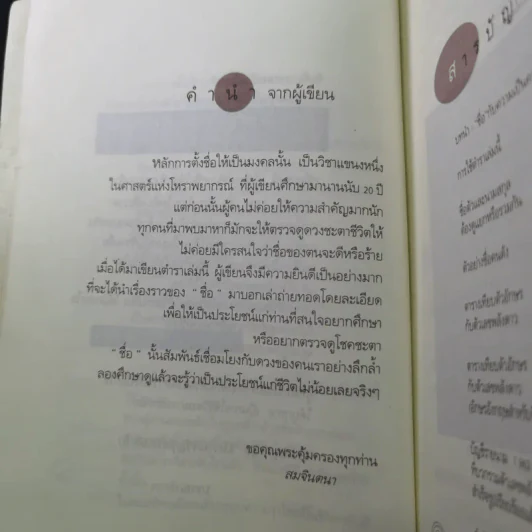 คำนำ จากผู้เขียน
หลักการตั้งชื่อให้เป็นมงคลนั้น เป็นวิชาแขนงหนึ่ง
ในศาสตร์แห่งโหราพยากรณ์ ที่ผู้เขียนศึกษามานานนับ 20 ปี
แต่ก่อนนั้นผู้คนไม่ค่อยให้ความสำคัญมากนัก
ทุกคนที่มาพบมาหาก็มักจะให้ตรวจดูดวงชะตาชีวิตให้
ไม่ค่อยมีใครสนใจว่าชื่อของตนจะดีหรือร้าย
เมื่อได้มาเขียนตำราเล่มนี้ ผู้เขียนจึงมีความยินดีเป็นอย่างมาก
ที่จะได้นำเรื่องราวของ " ชื่อ " มาบอกเล่าถ่ายทอดโดยละเอียด
เพื่อให้เป็นประโยชน์แก่ท่านที่สนใจอยากศึกษา
หรืออยากตรวจดูโชคชะตา
" ชื่อ " นั้นสัมพันธ์เชื่อมโยงกับดวงของคนเราอย่างลึกล้ำ
ลองศึกษาดูแล้วจะรู้ว่าเป็นประโยชน์แก่ชีวิตไม่น้อยเลยจริงๆ
ขอคุณพระคุ้มครองทุกท่าน
สมจินตนา
สารบัญ
การใช้ตำราเล่มนี้
ชื่อตัวและนามสกุล
ต้องดูแยกหรือรวมกัน
ตัวอย่างชื่อคนดัง
ตารางเทียบตัวอักษร
กับตัวเลขพลังดาว
ตารางเทียบตัวอักษร
กับตัวเลขพลังดาว